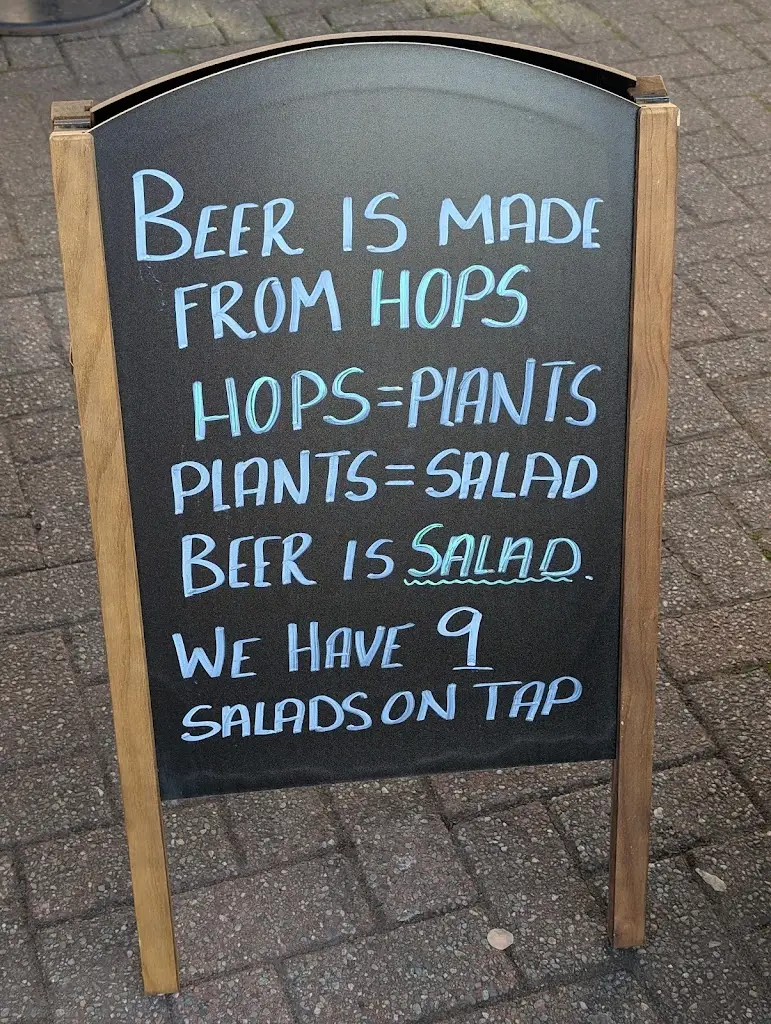 BEER IS MADE
FROM HOPS
HOPS=PLANTS
PLANTS=SALAD
BEER IS SALAD.
WE HAVE 9
SALADS ON TAP